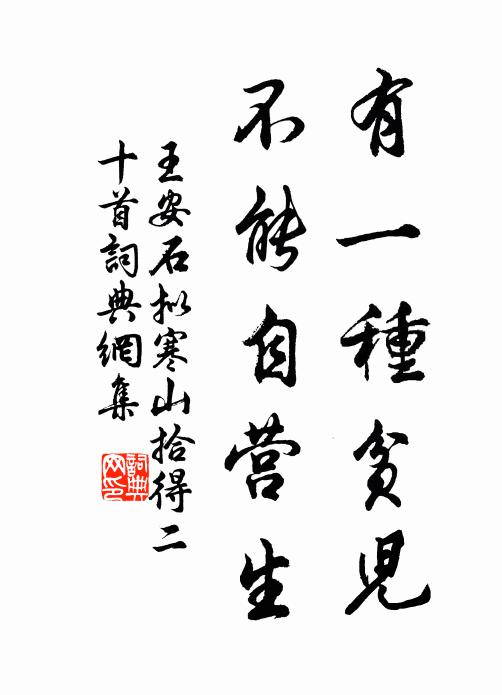 有一種貧兒
不能自营生
王安石拟寒山拾得二
十首詞典網集
詞典
网印